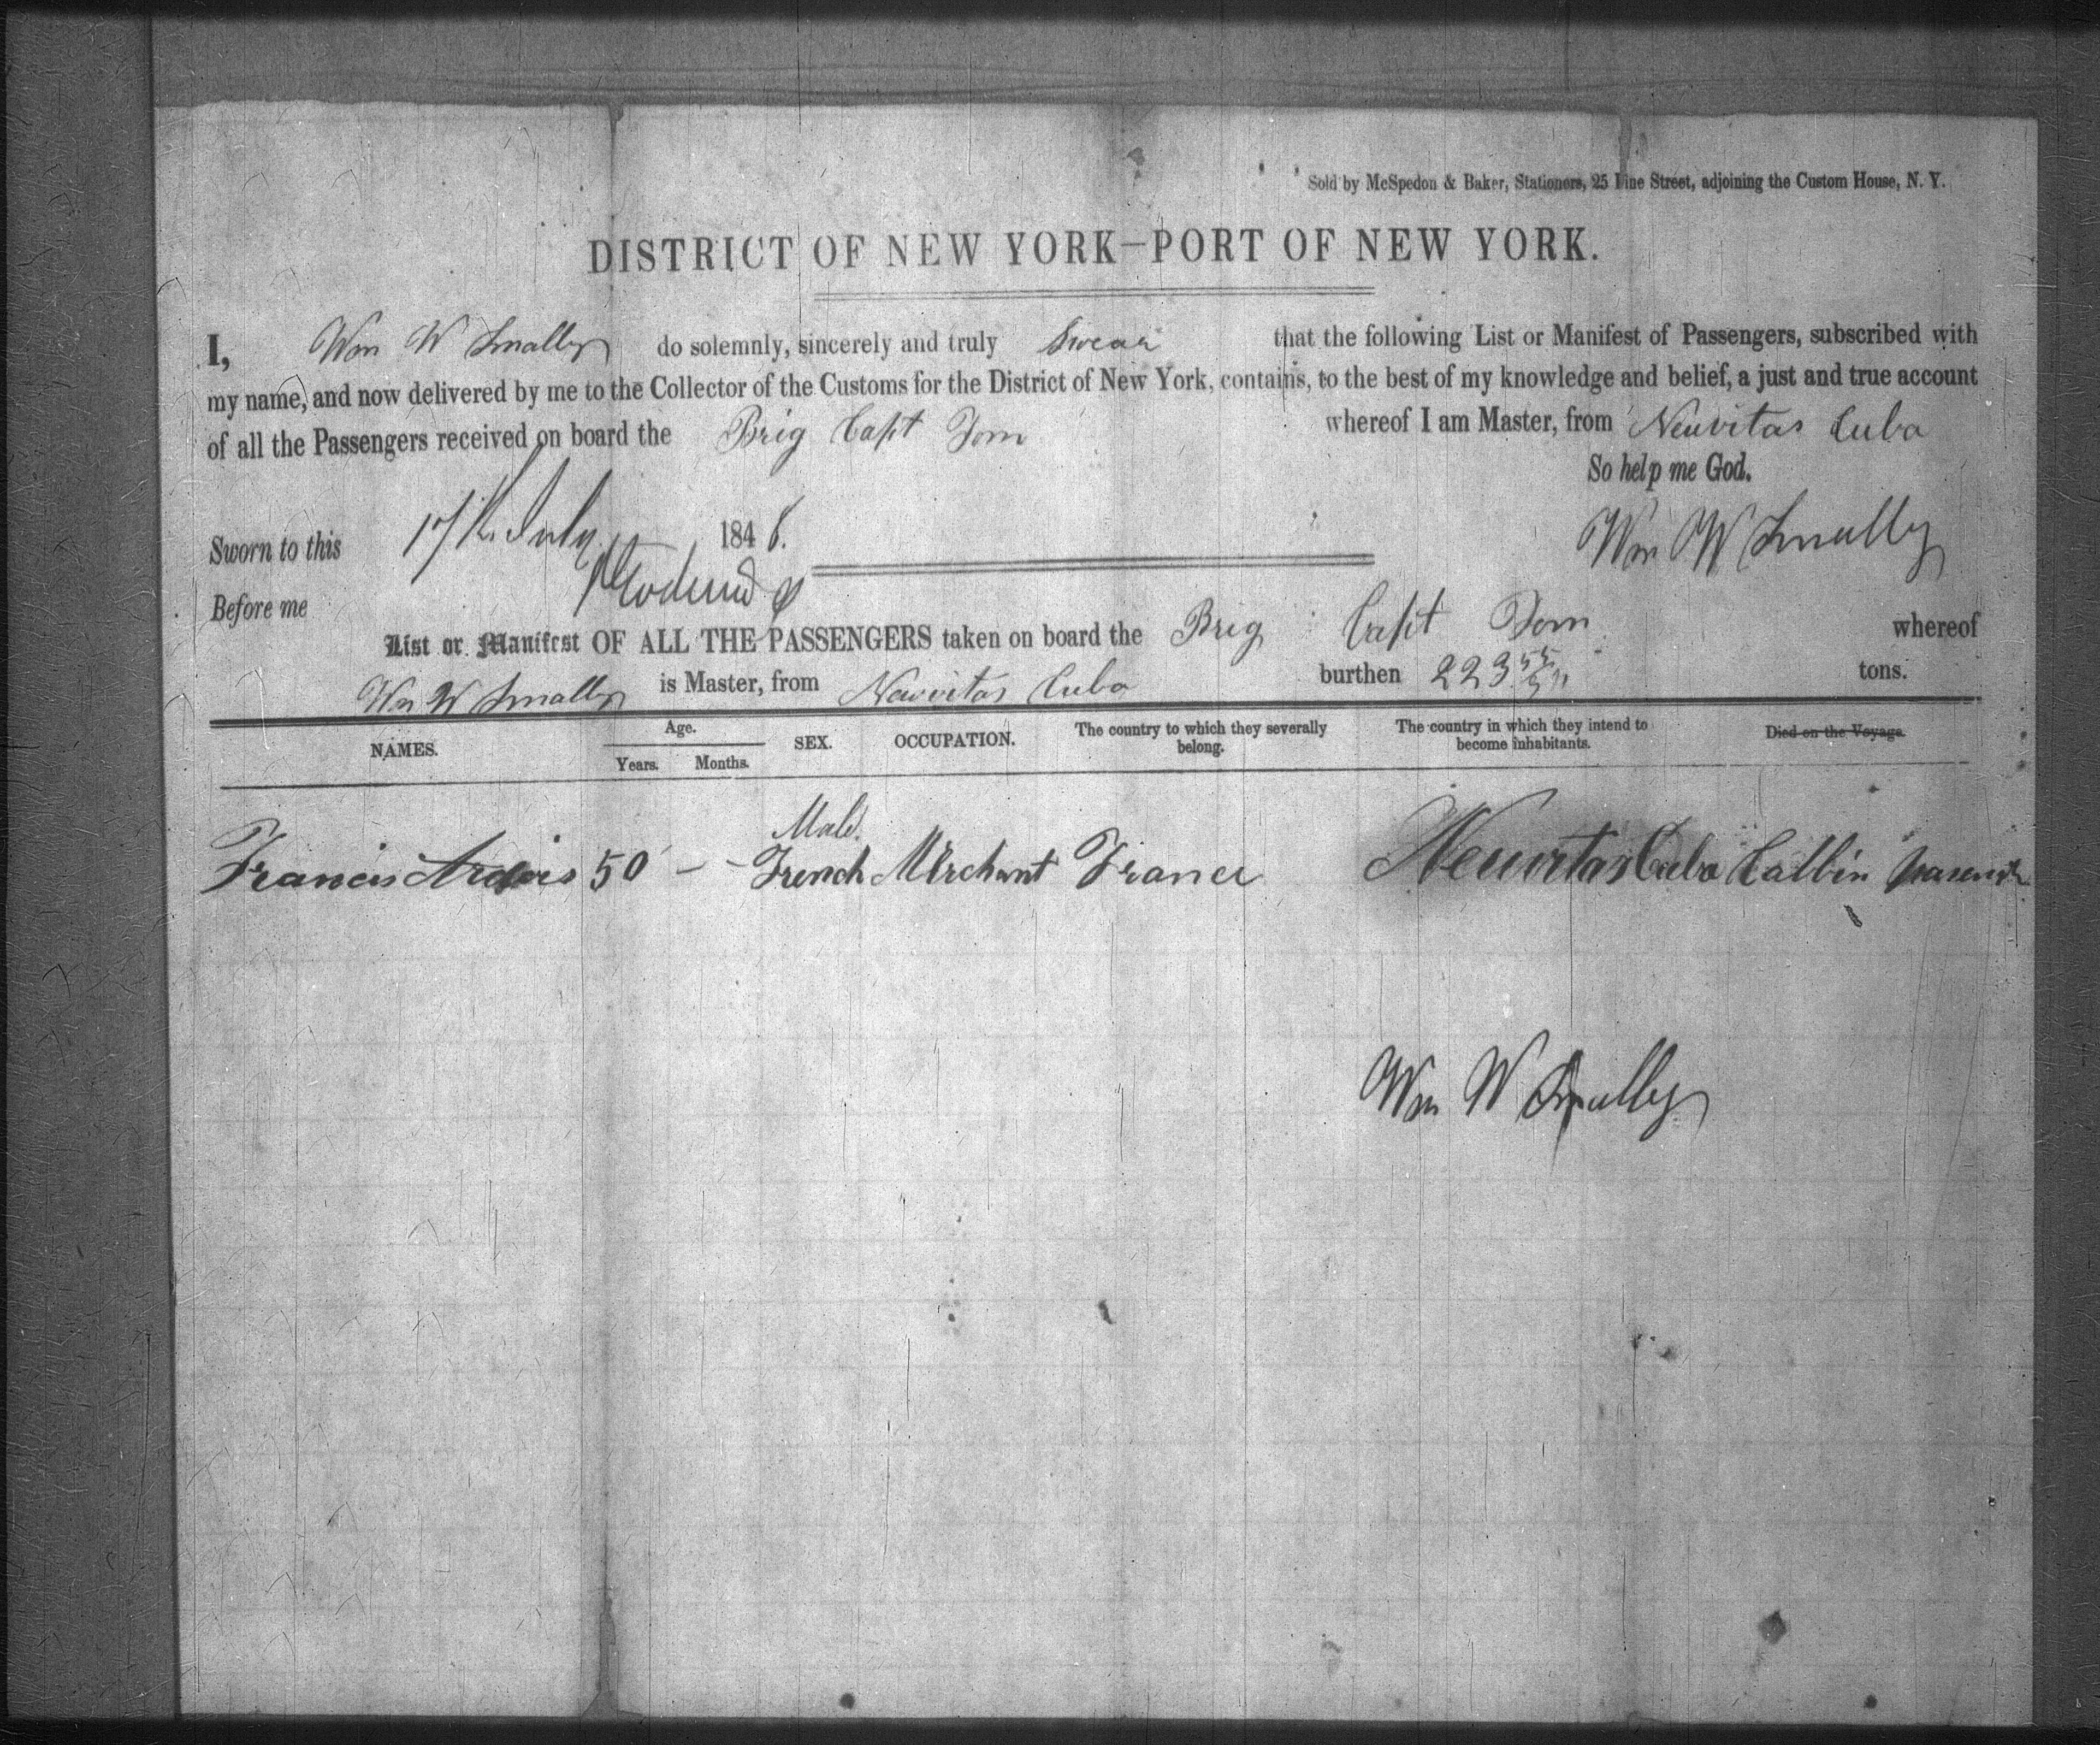 Sold by McSpedon & Baker, Stationers, 25 Pine Street, adjoining the Custom House, N. Y.
DISTRICT OF NEW YORK—PORT OF NEW YORK.
I, Wm W Smalley do solemnly, sincerely and truly Swear that the following List or Manifest of Passengers, subscribed with
my name, and now delivered by me to the Collector of the Customs for the District of New York, contains, to the best of my knowledge and belief, a just and true account
of all the Passengers received on board the Brig Capt Tom whereof I am Master, from Neuvitas Cuba
So help me God.
Sworn to this 17th July 1846.
Wm W Smally
Before me
List or Manifest OF ALL THE PASSENGERS taken on board the Brig Capt Tom whereof
Wm W Smalley is Master, from Neuvitas Cuba burthen 223 tons.
NAMES. Age. Years. Months. SEX. OCCUPATION. The country to which they severally belong. The country in which they intend to become inhabitants. Died on the Voyage.
Male.
Francis 50 – – French Merchant France Neuvitas Cuba
Wm W Smalley